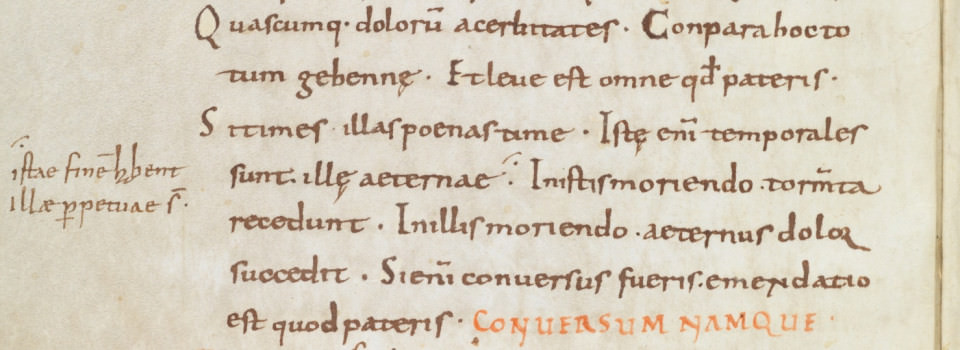 Quascumq· dolorū acerbitates · Conpara hoc to
tum gehennę · Et leue est omne qđ pateris ·
Si times illas poenas time · Istę eni᷉ temporales
sunt. illę aeternae · In istis moriendo · torm̄ta
recedunt · In illis moriendo · aeternus dolor
succedit · Si eni᷉ conuersus fueris. emendatio
est quod pateris · CONUERSUM NAMQUE ·
istae finē hƀent
illae ꝑpetuae s̄ ·